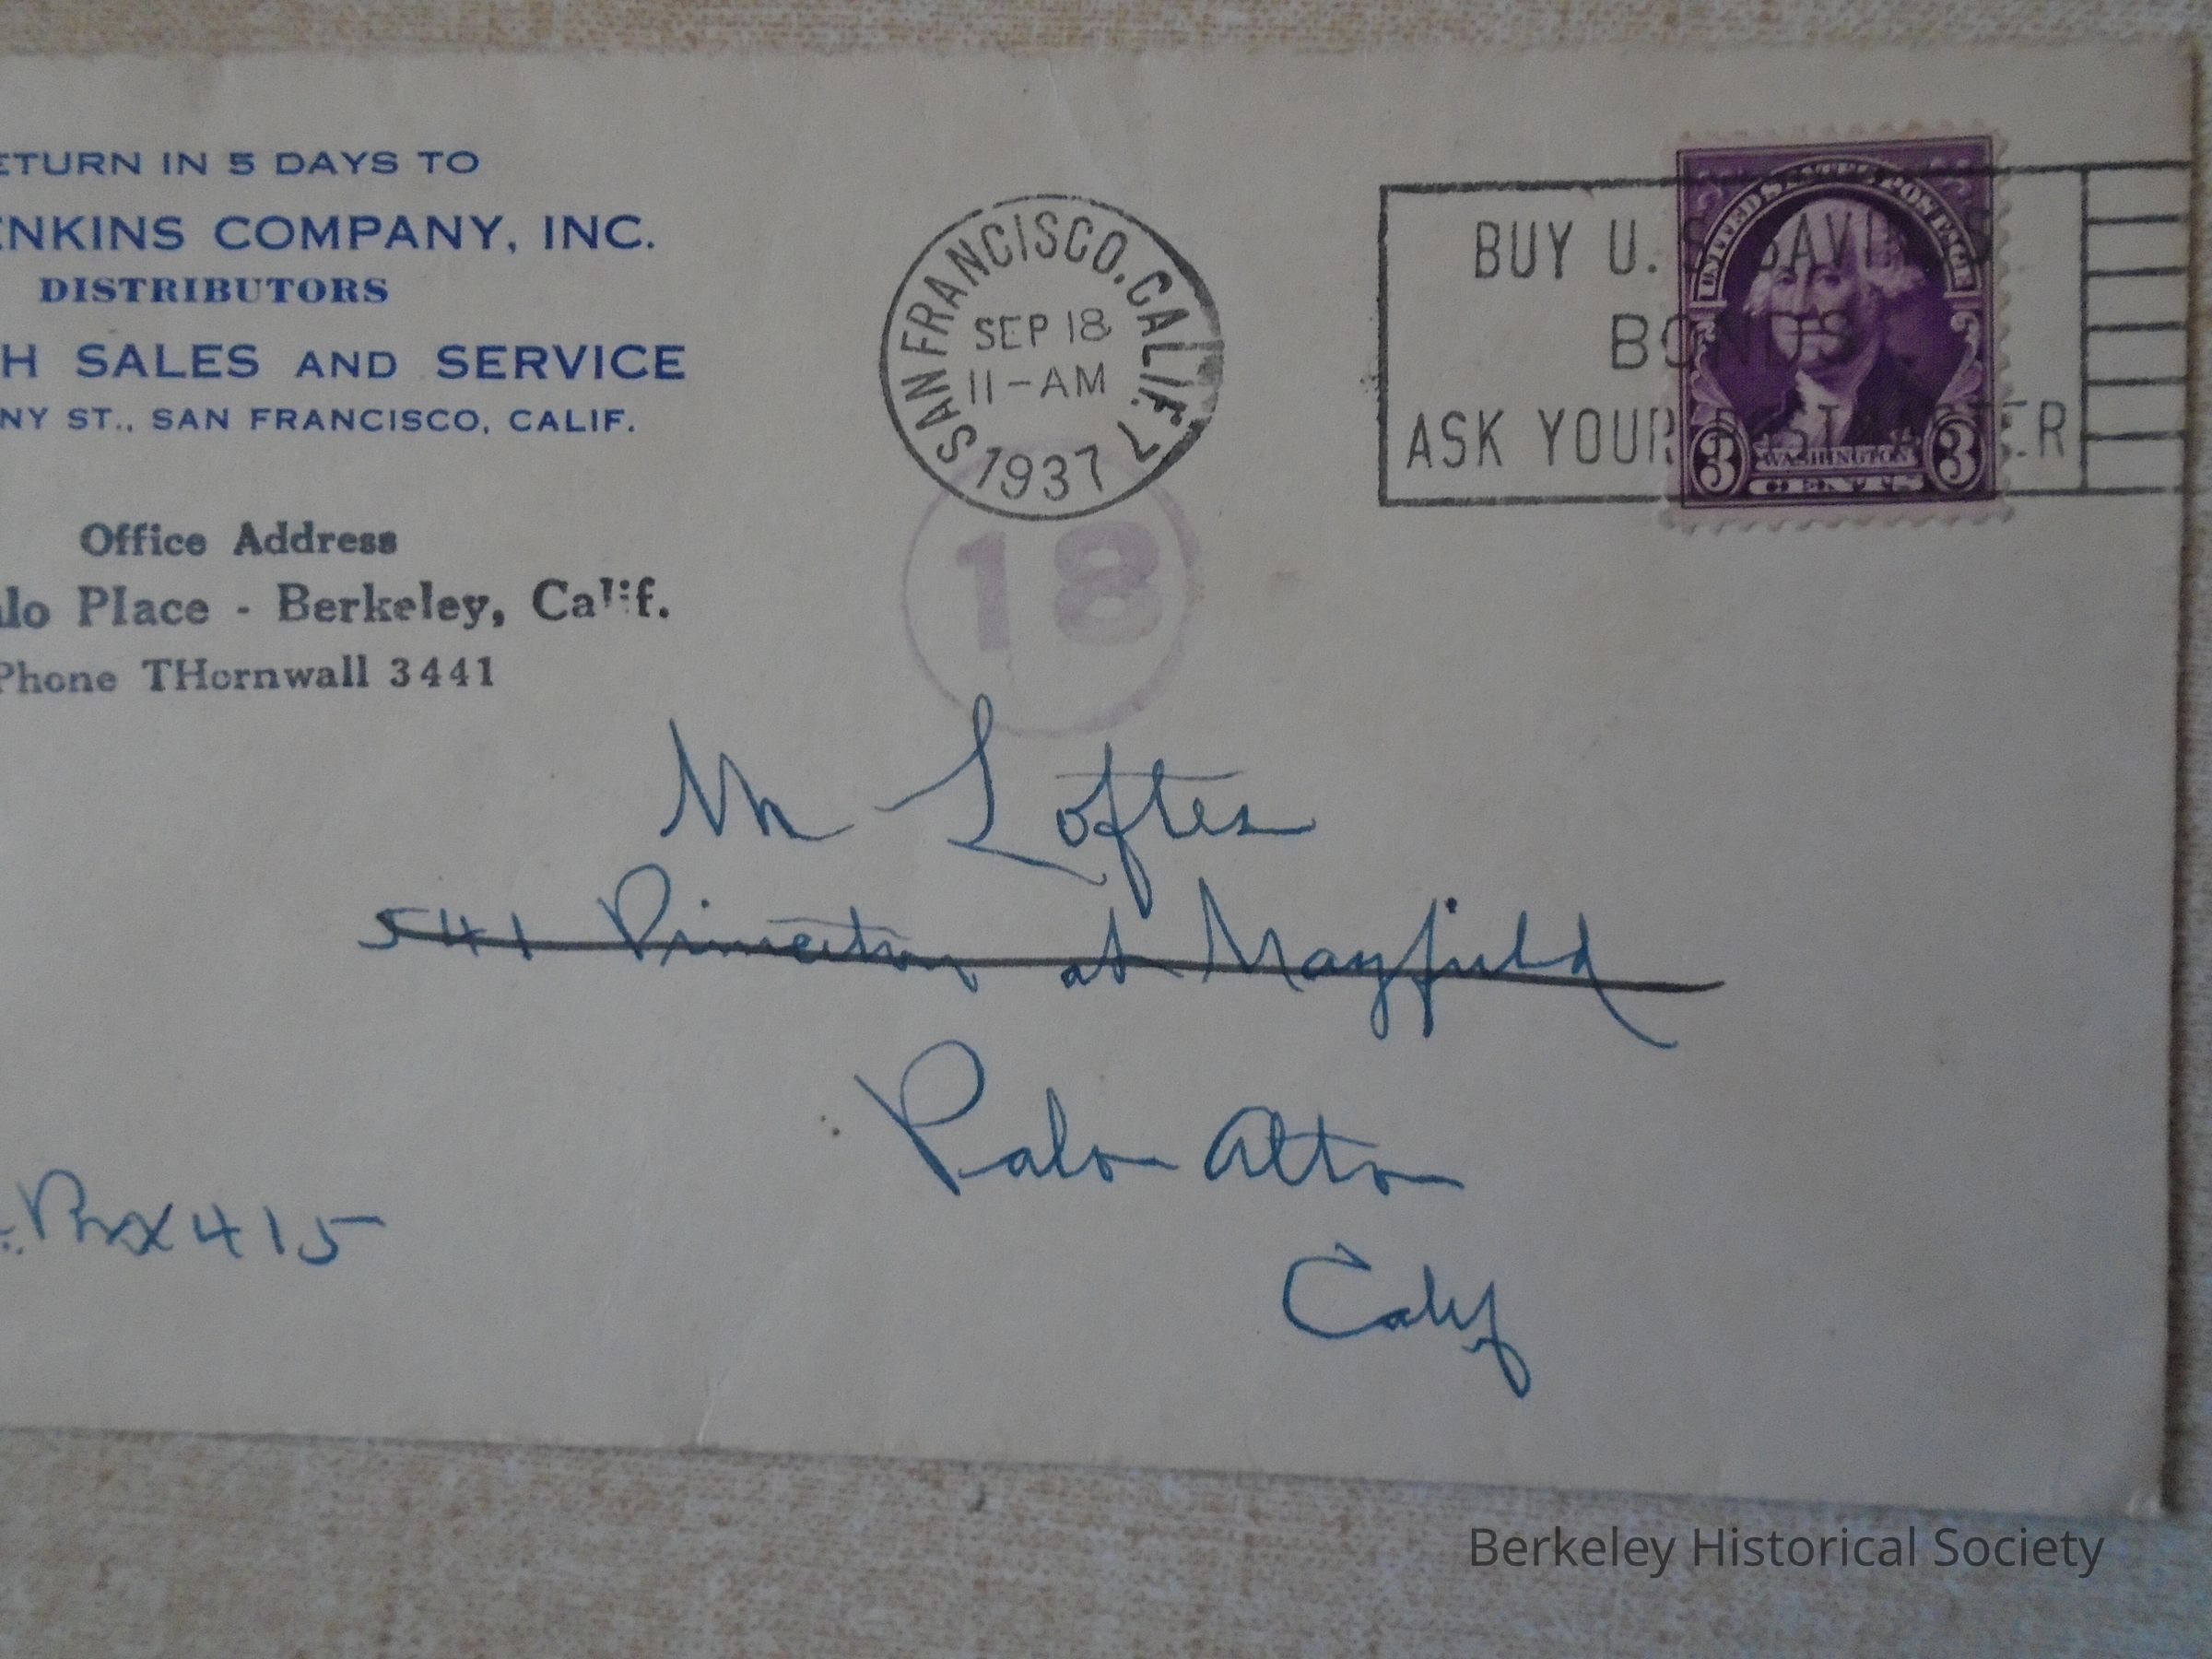 ETURN IN 5 DAYS TO
ENKINS COMPANY, INC.
DISTRIBUTORS
H SALES AND SERVICE
NY ST., SAN FRANCISCO, CALIF.
Office Address
lo Place - Berkeley, Calif.
Phone THornwall 3441
SAN FRANCISCO, CALIF. 7
SEP 18
11-AM
1937
18
BUY U.S. SAVINGS
BONDS
ASK YOUR POSTMASTER
UNITED STATES POSTAGE
3 WASHINGTON 3
CENTS
Mr Loftes
541 Princeton at Mayfield
Palo Alto
Calif
415
Berkeley Historical Society